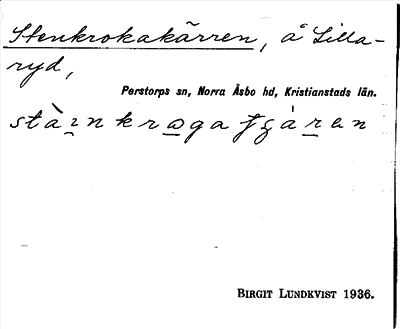 Stenkrokakärren, å Lilla-
ryd,
Perstorps sn, Norra Åsbo hd, Kristianstads län.
BIRGIT LUNDKVIST 1936.